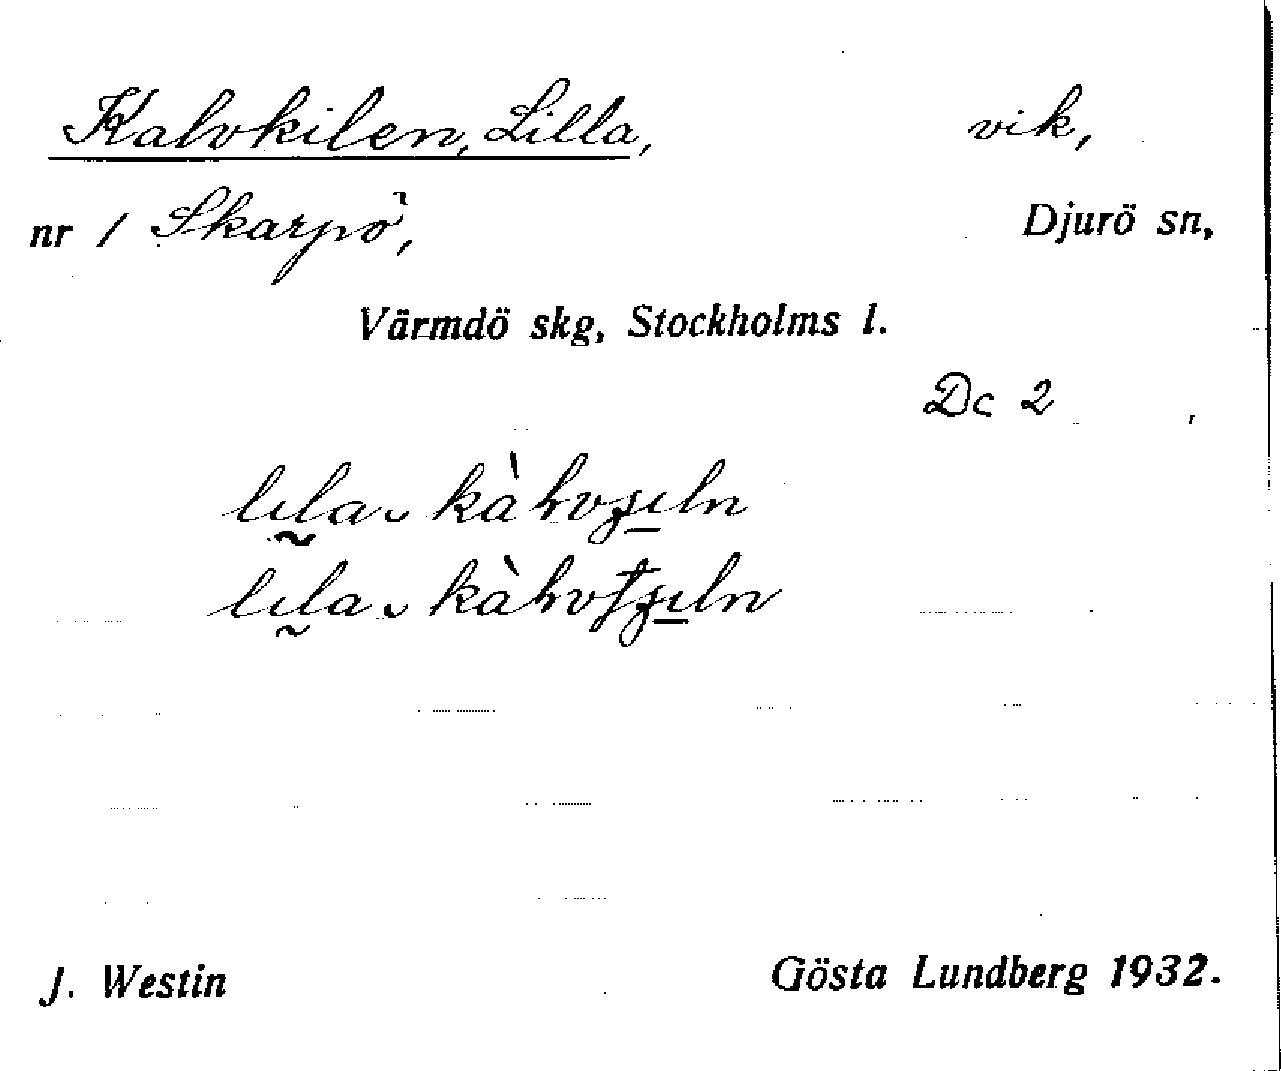 Kalvkilen, Lilla, vik,
nr 1 Skarpö, Djurö sn,
Värmdö skg, Stockholms l.
Dc 2
J. Westin Gösta Lundberg 1932.